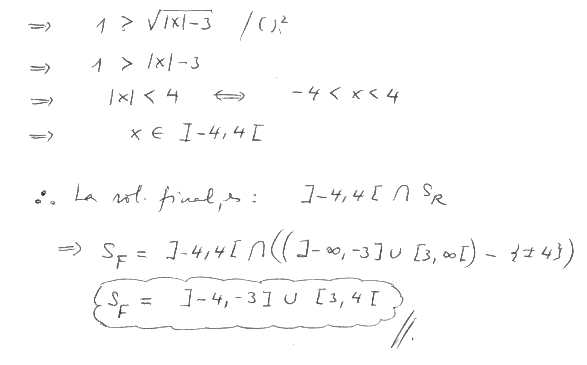 ⟹ 1 > √|x|-3 /()²
⟹ 1 > |x|-3
⟹ |x| < 4 ⟺ -4 < x < 4
⟹ x ∈ ]-4,4[
∴ La sol. final, es: ]-4,4[ ∩ S_R
⟹ S_F = ]-4,4[ ∩ ((]-∞,-3] ∪ [3,∞[) - {±4})
S_F = ]-4,-3] ∪ [3,4[ //.